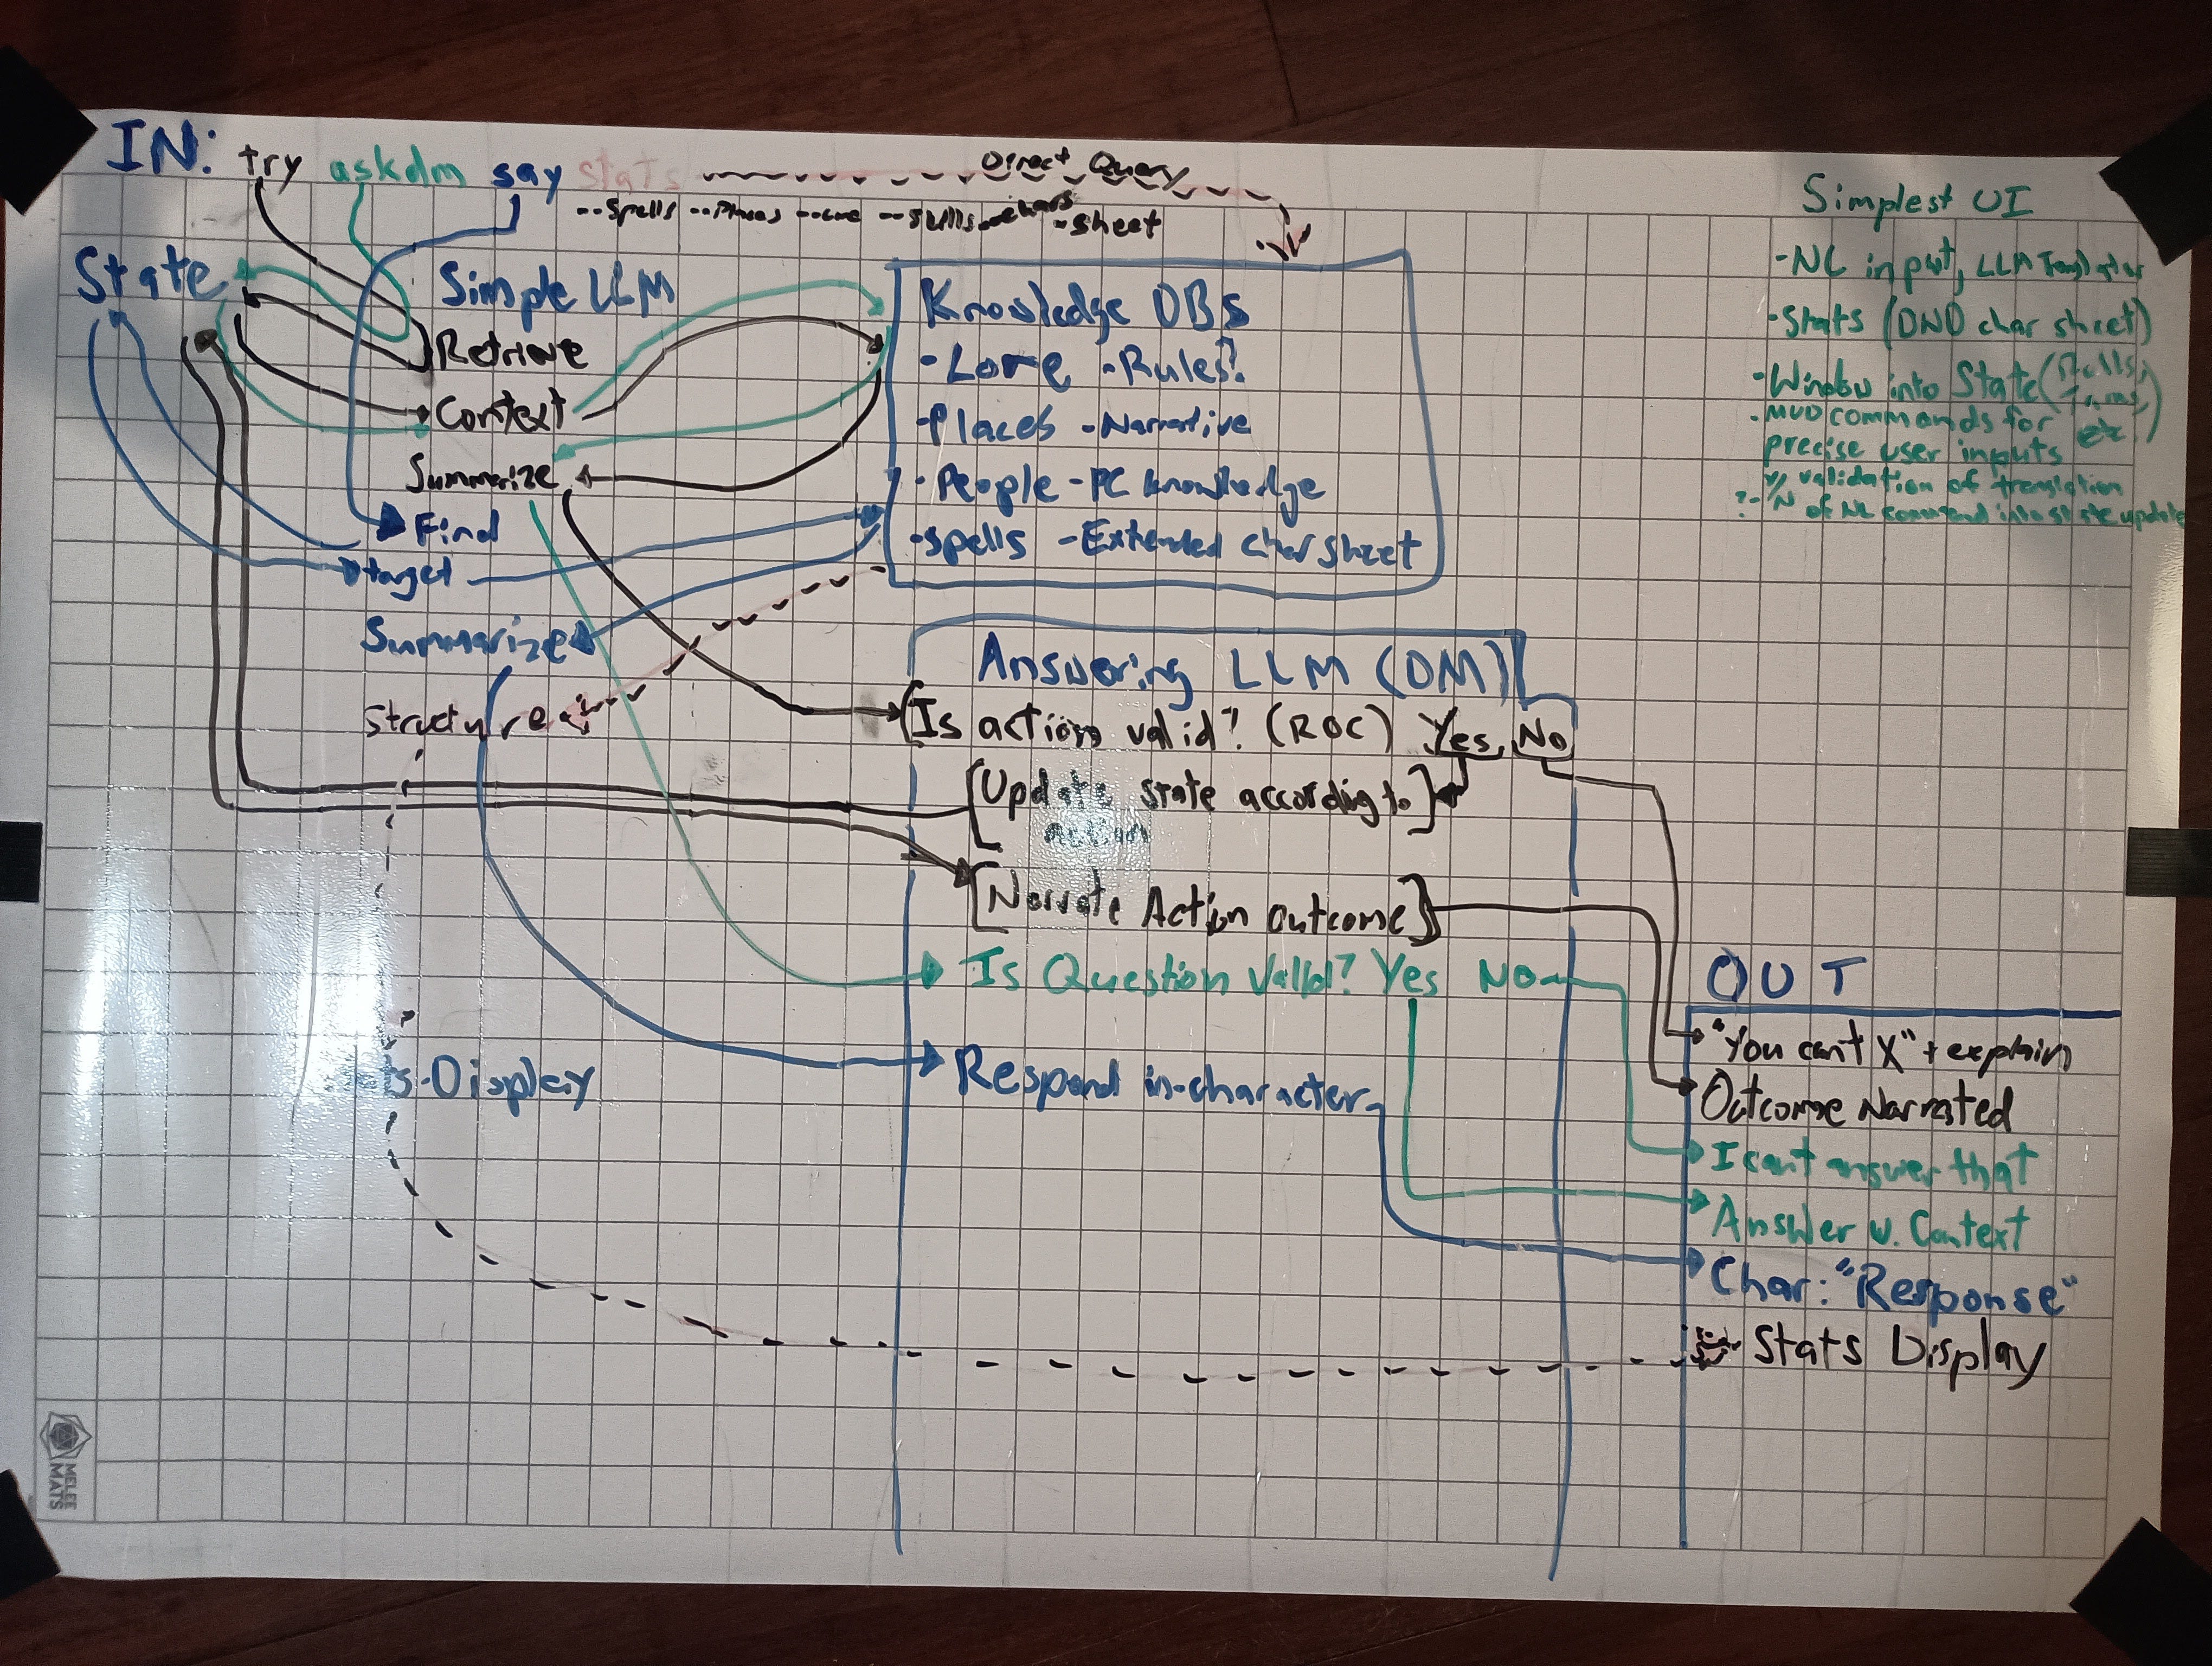 IN: try askdm say stats Direct Query
--Spells --Places --Lore --Skills --chars --sheet
State
Simple LLM
Retrieve
Context
Summarize
Find
target
Summarize
Structure
Knowledge DBs
-Lore -Rules?
-Places -Narrative
-People -PC knowledge
-spells -Extended char sheet
Answering LLM (DM)
Is action valid? (ROC) Yes, No
Update state according to
action
Narrate Action outcome
Is Question Valid? Yes No
Respond in-character
-Display
Simplest UI
-NL input, LLM Translator
-Stats (DND char sheet)
-Window into State (Rolls,
etc.)
-MUD commands for
precise user inputs
w/ validation of translation
?-Y/N of NL command into state update
OUT
"You can't X" + explain
Outcome Narrated
I cant answer that
Answer w. Context
Char: "Response"
Stats Display
MELEE
MATS